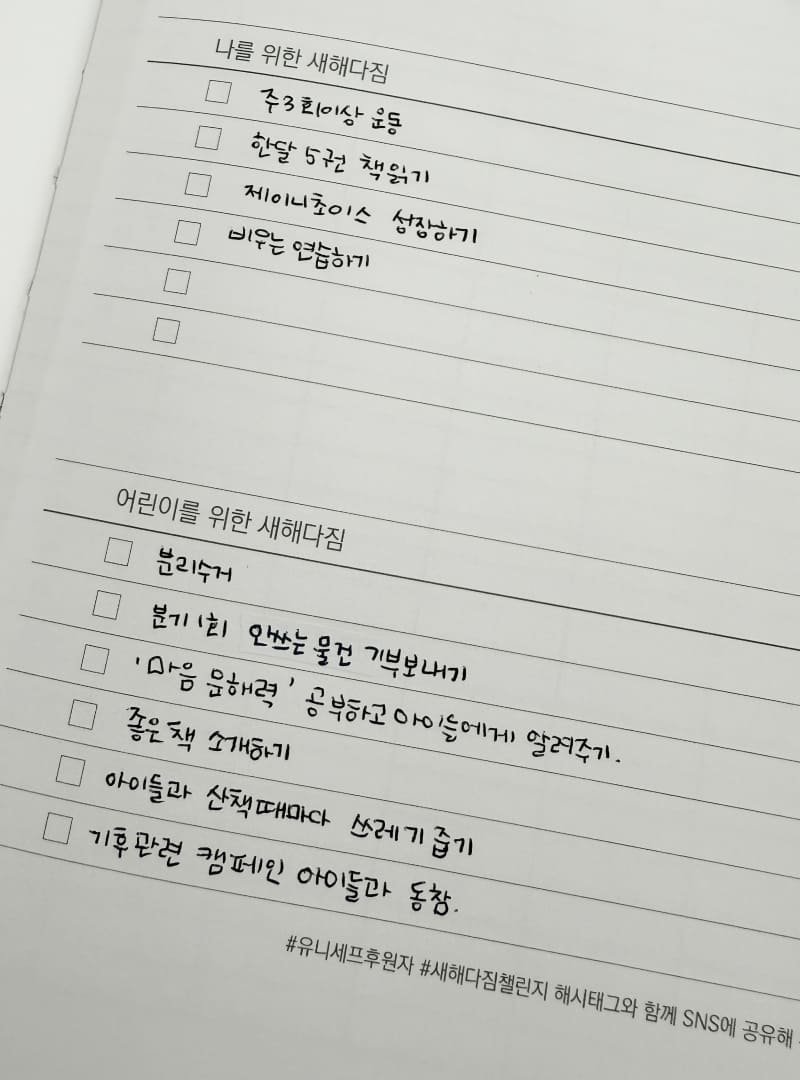 나를 위한 새해다짐
주3회이상 운동
한달 5권 책읽기
제이니초이스 성장하기
비우는 연습하기
어린이를 위한 새해다짐
분리수거
분기 1회 안쓰는 물건 기부보내기
'마음 문해력' 공부하고 아이들에게 알려주기.
좋은책 소개하기
아이들과 산책때마다 쓰레기 줍기
기후관련 캠페인 아이들과 동참.
#유니세프후원자 #새해다짐챌린지 해시태그와 함께 SNS에 공유해